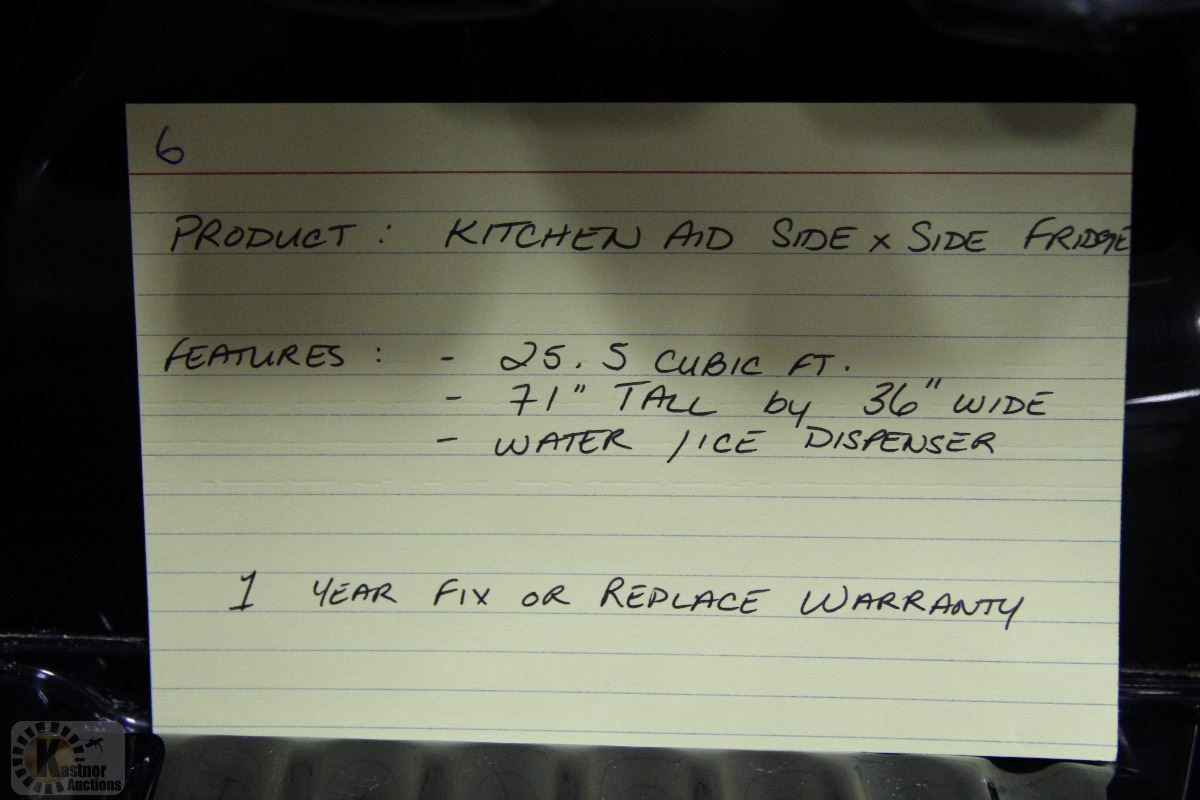 6
PRODUCT : KITCHEN AID SIDE x SIDE FRIDGE
FEATURES : - 25.5 CUBIC FT.
- 71" TALL by 36" WIDE
- WATER / ICE DISPENSER
1 YEAR FIX OR REPLACE WARRANTY
Kastner
Auctions